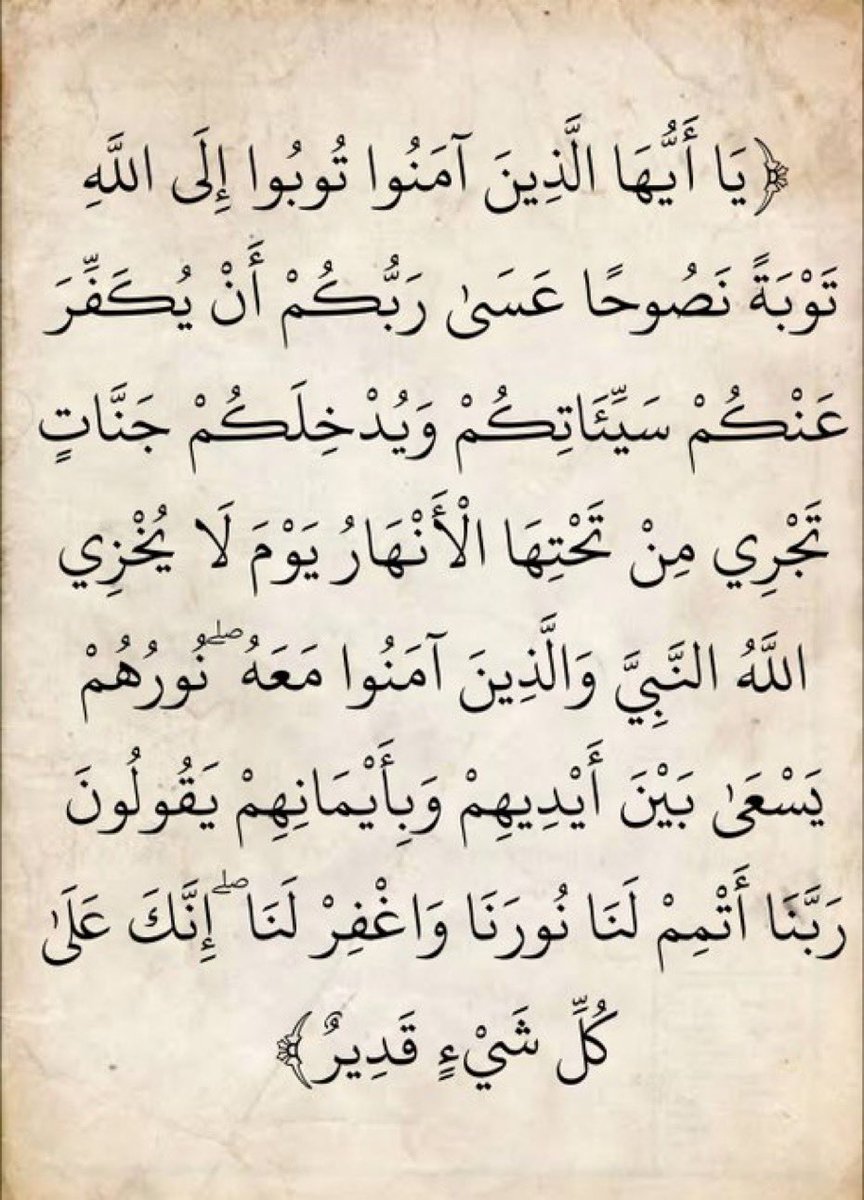 ﴿يَا أَيُّهَا الَّذِينَ آمَنُوا تُوبُوا إِلَى اللَّهِ
تَوْبَةً نَصُوحًا عَسَىٰ رَبُّكُمْ أَنْ يُكَفِّرَ
عَنْكُمْ سَيِّئَاتِكُمْ وَيُدْخِلَكُمْ جَنَّاتٍ
تَجْرِي مِنْ تَحْتِهَا الْأَنْهَارُ يَوْمَ لَا يُخْزِي
اللَّهُ النَّبِيَّ وَالَّذِينَ آمَنُوا مَعَهُ ۖ نُورُهُمْ
يَسْعَىٰ بَيْنَ أَيْدِيهِمْ وَبِأَيْمَانِهِمْ يَقُولُونَ
رَبَّنَا أَتْمِمْ لَنَا نُورَنَا وَاغْفِرْ لَنَا ۖ إِنَّكَ عَلَىٰ
كُلِّ شَيْءٍ قَدِيرٌ﴾